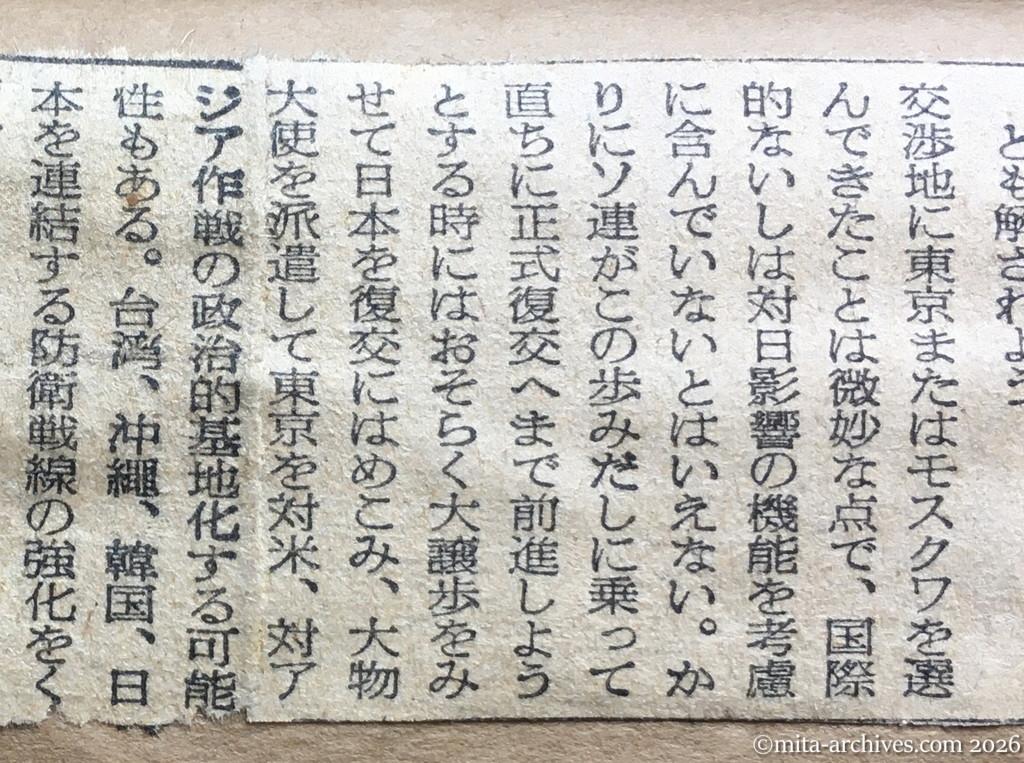 とも解されよう
交渉地に東京またはモスクワを選
んできたことは微妙な点で、国際
的ないしは対日影響の機能を考慮
に含んでいないとはいえない。か
りにソ連がこの歩みだしに乗って
直ちに正式復交へまで前進しよう
とする時にはおそらく大譲歩をみ
せて日本を復交にはめこみ、大物
大使を派遣して東京を対米、対ア
ジア作戦の政治的基地化する可能
性もある。台湾、沖縄、韓国、日
本を連結する防衛戦線の強化をく
©mita-archives.com 2026